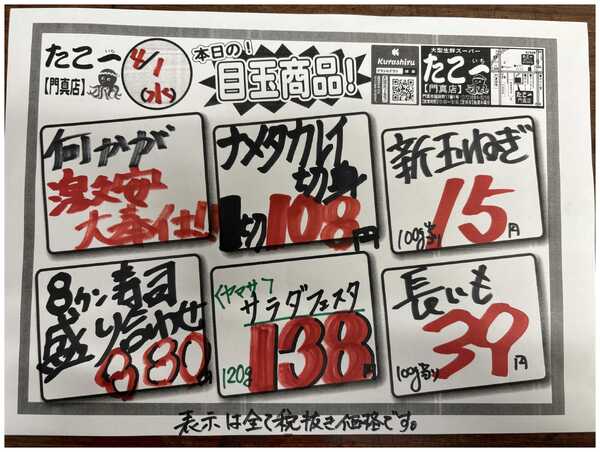 たこ一
いち
【門真店】
4/1
(水)
本日の!
目玉商品!
Kurashiru
大型生鮮スーパー
たこ一
いち
【門真店】
何かが
激安
大奉仕!!
ナメタカレイ
切身
1切108円
新玉ねぎ
100g当り15円
8カン寿司
盛り合わせ
880円
(ヤマサン)
サラダフェスタ
120g 138円
長いも
100g当り39円
表示は全て税抜き価格です。